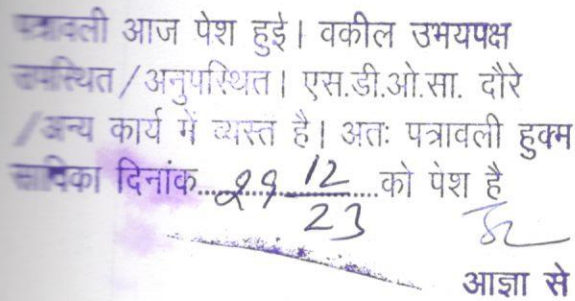 पत्रावली आज पेश हुई। वकील उभयपक्ष
उपस्थित/अनुपस्थित। एस.डी.ओ.सा. दौरे
/अन्य कार्य में व्यस्त है। अतः पत्रावली हुक्म
साविका दिनांक..29 12/23..को पेश है
आज्ञा से